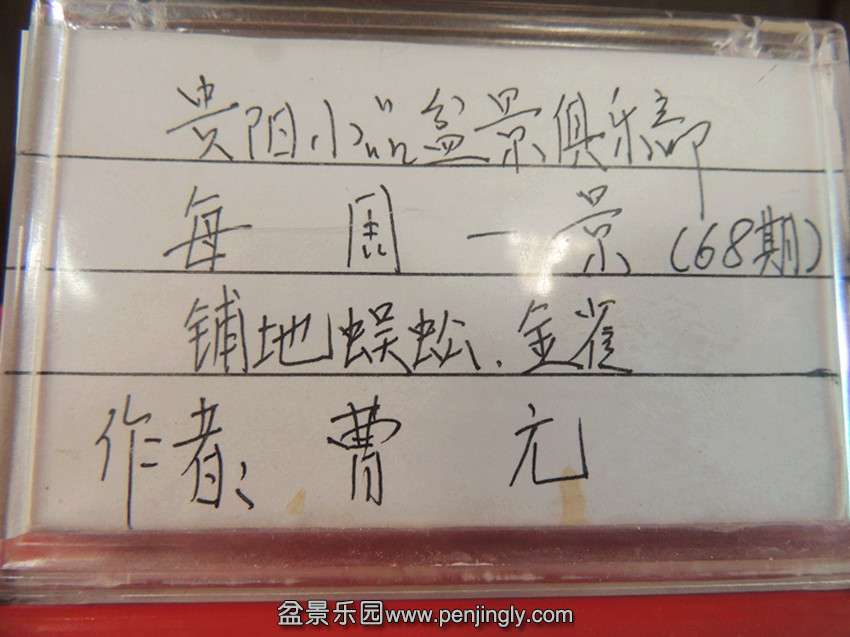 贵阳小品盆景俱乐部
每周一景(68期)
铺地蜈蚣.金雀
作者:曹元
盆景乐园www.penjingly.com